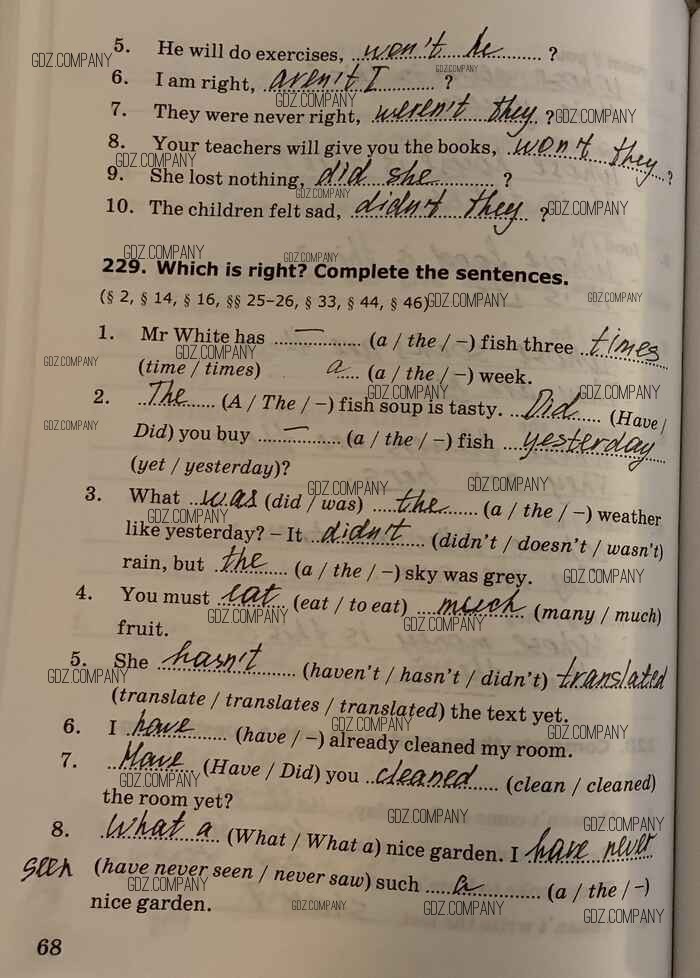 5. He will do exercises, won't he ?
GDZ.COMPANY
6. I am right, aren't I ?
GDZ.COMPANY
GDZ.COMPANY
7. They were never right, weren't they. ?
GDZ.COMPANY
8. Your teachers will give you the books, won't they ?
GDZ.COMPANY
9. She lost nothing, did she ?
GDZ.COMPANY
10. The children felt sad, didn't they ?
GDZ.COMPANY
GDZ.COMPANY
GDZ.COMPANY
229. Which is right? Complete the sentences.
(§ 2, § 14, § 16, §§ 25–26, § 33, § 44, § 46)
GDZ.COMPANY
GDZ.COMPANY
1. Mr White has — (a / the / –) fish three times
GDZ.COMPANY
GDZ.COMPANY
(time / times) a (a / the / –) week.
GDZ.COMPANY
GDZ.COMPANY
2. The (A / The / –) fish soup is tasty. Did (Have /
GDZ.COMPANY
Did) you buy — (a / the / –) fish yesterday
(yet / yesterday)?
GDZ.COMPANY
GDZ.COMPANY
3. What was (did / was) the (a / the / –) weather
GDZ.COMPANY
like yesterday? – It didn't (didn't / doesn't / wasn't)
rain, but the (a / the / –) sky was grey.
GDZ.COMPANY
4. You must eat (eat / to eat) much (many / much)
GDZ.COMPANY
GDZ.COMPANY
fruit.
5. She hasn't (haven't / hasn't / didn't) translated
GDZ.COMPANY
(translate / translates / translated) the text yet.
GDZ.COMPANY
6. I have (have / –) already cleaned my room.
GDZ.COMPANY
7. Have (Have / Did) you cleaned (clean / cleaned)
GDZ.COMPANY
the room yet?
GDZ.COMPANY
GDZ.COMPANY
8. What a (What / What a) nice garden. I have never
seen (have never seen / never saw) such a (a / the / –)
GDZ.COMPANY
nice garden.
GDZ.COMPANY
GDZ.COMPANY
GDZ.COMPANY
68